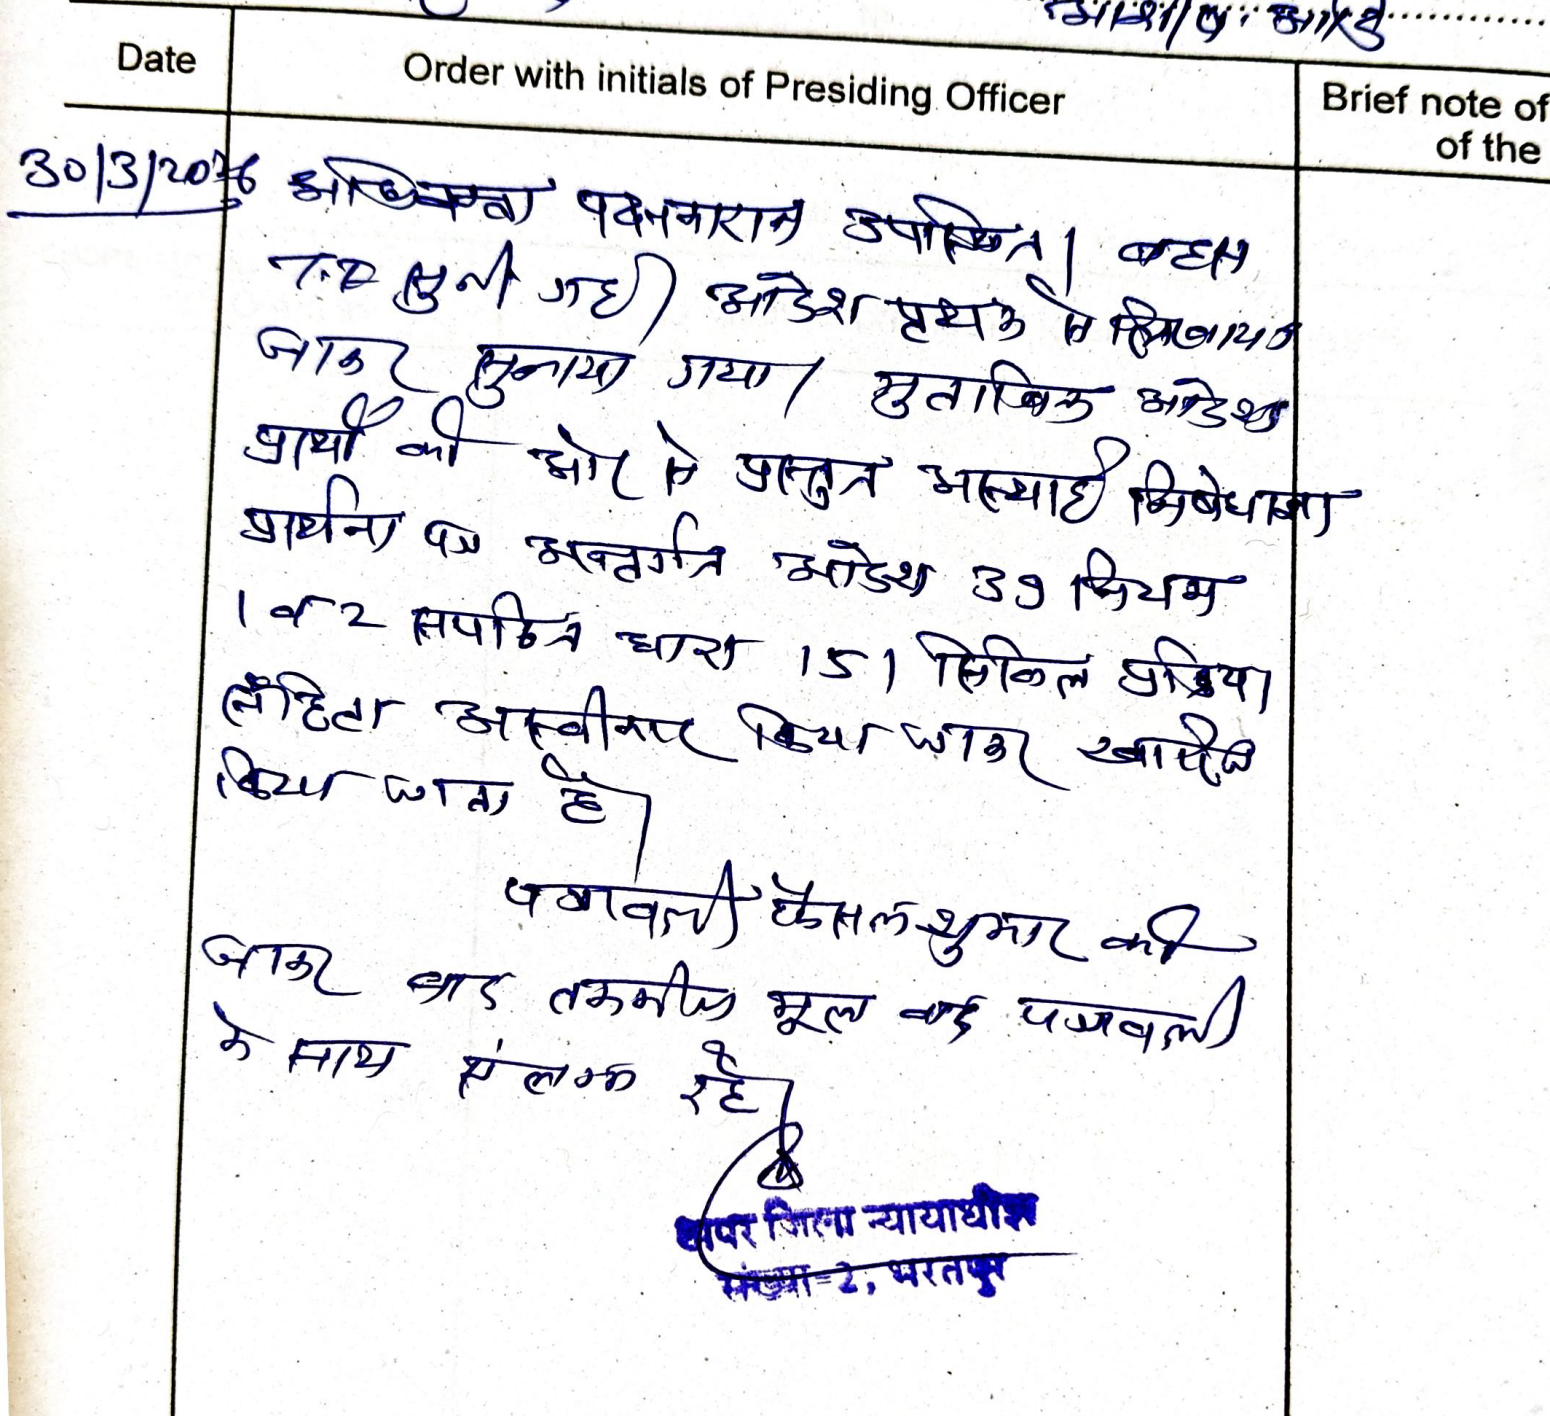 Date
Order with initials of Presiding Officer
Brief note of
of the
30/3/2026
अधिवक्ता पक्षकारान उपस्थित। बहस
T.I सुनी गई। आदेश पृथक से लिखाया
जाकर सुनाया गया। मुताबिक आदेश
प्रार्थी की ओर से प्रस्तुत अस्थाई निषेधाज्ञा
प्रार्थना पत्र अन्तर्गत आदेश 39 नियम
1 व 2 सपठित धारा 151 सिविल प्रक्रिया
संहिता अस्वीकार किया जाकर खारिज
किया जाता है।
पत्रावली फैसल शुमार की
जाकर बाद तकमील मूल वाद पत्रावली
के साथ संलग्न रहे।
अपर जिला न्यायाधीश
संख्या-2, भरतपुर